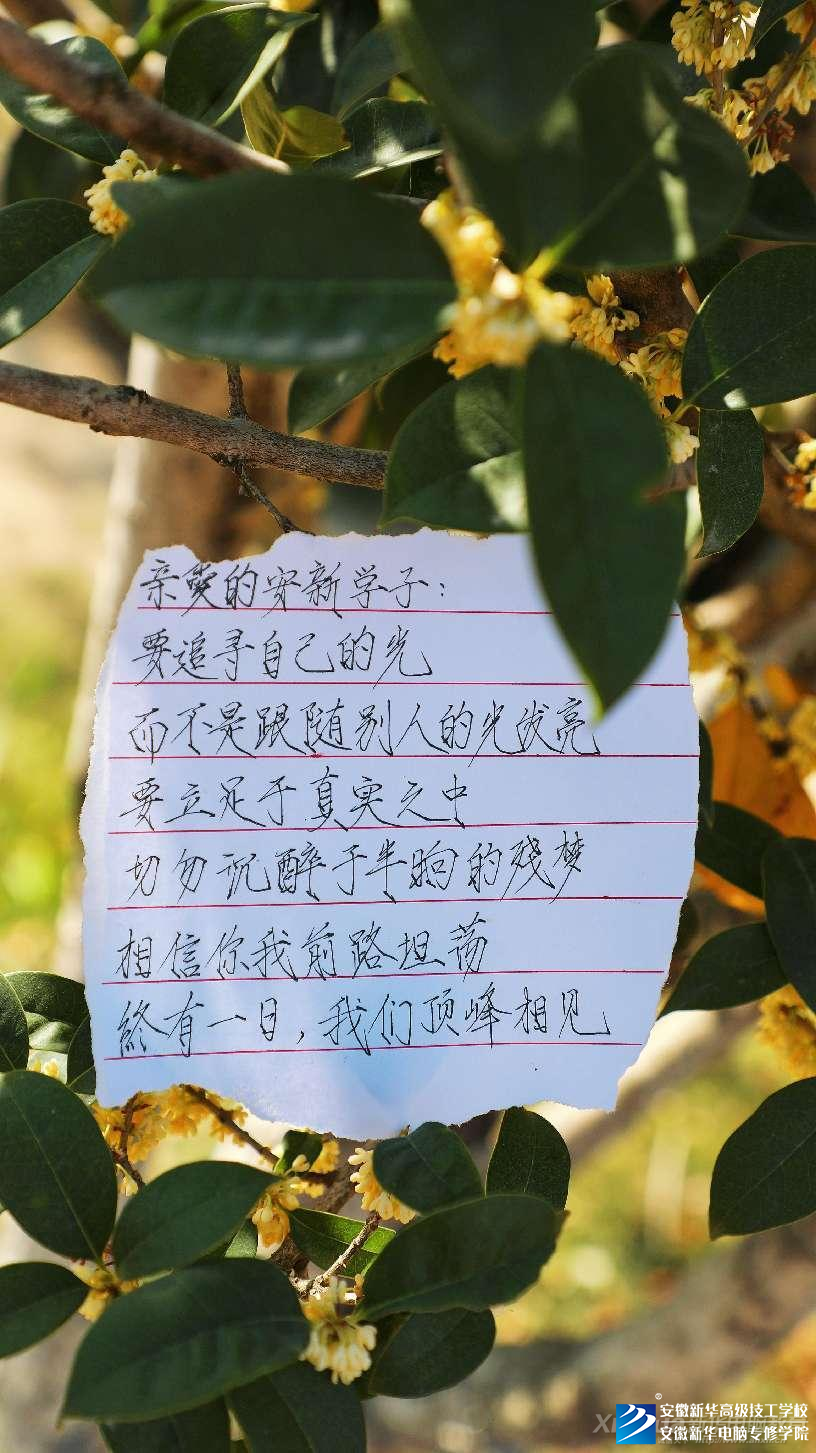 亲爱的安新学子：
要追寻自己的光
而不是跟随别人的光发亮
要立足于真实之中
切勿沉醉于半晌的残梦
相信你我前路坦荡
終有一日，我们顶峰相见
安徽新华高级技工学校
安徽新华电脑专修学院